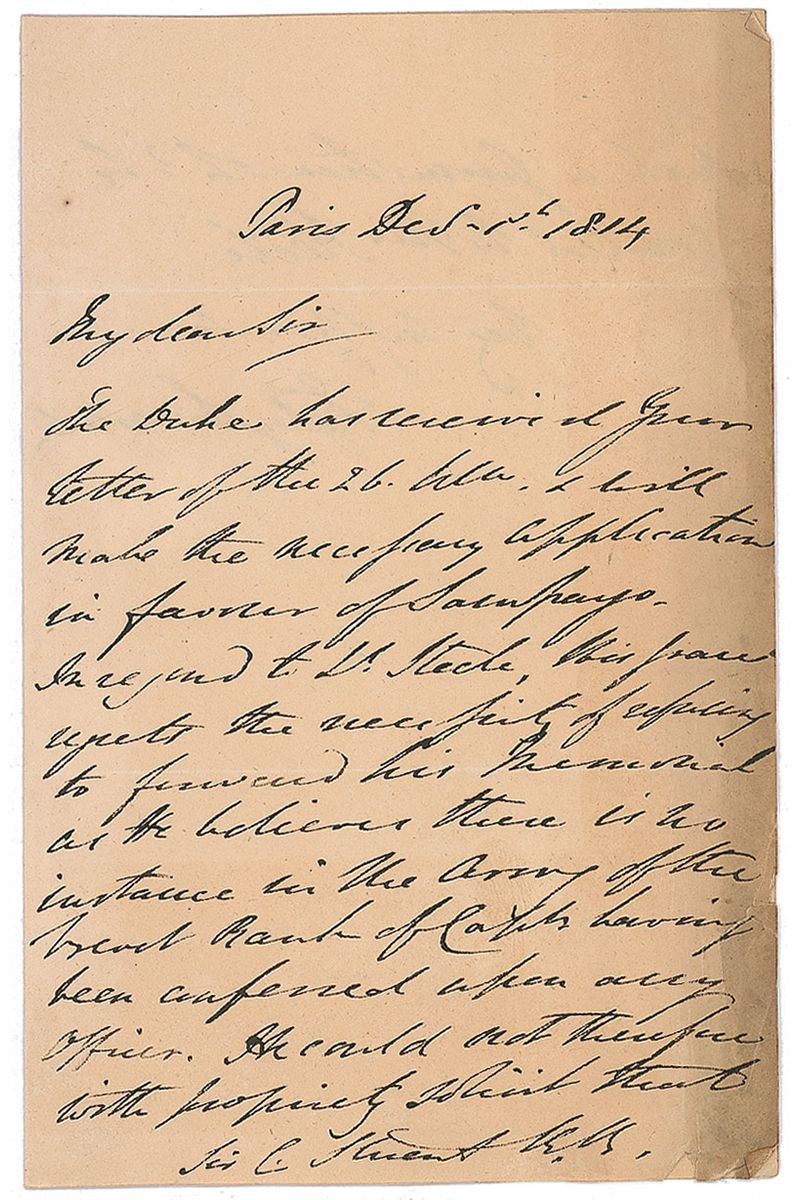 Paris Dec. 1st. 1814
My dear Sir
The Duke has received Your
letter of the 26. Ulto. & will
make the necessary application
in favour of Sampayo.
In regard to Lt. Steele, His Grace
regrets the necessity of refusing
to forward his Memorial
as He believes there is no
instance in the Army of the
brevet Rank of Captn having
been conferred upon any
Officer. He could not therefore
with propriety solicit that
Sir C. Stuart K.B.